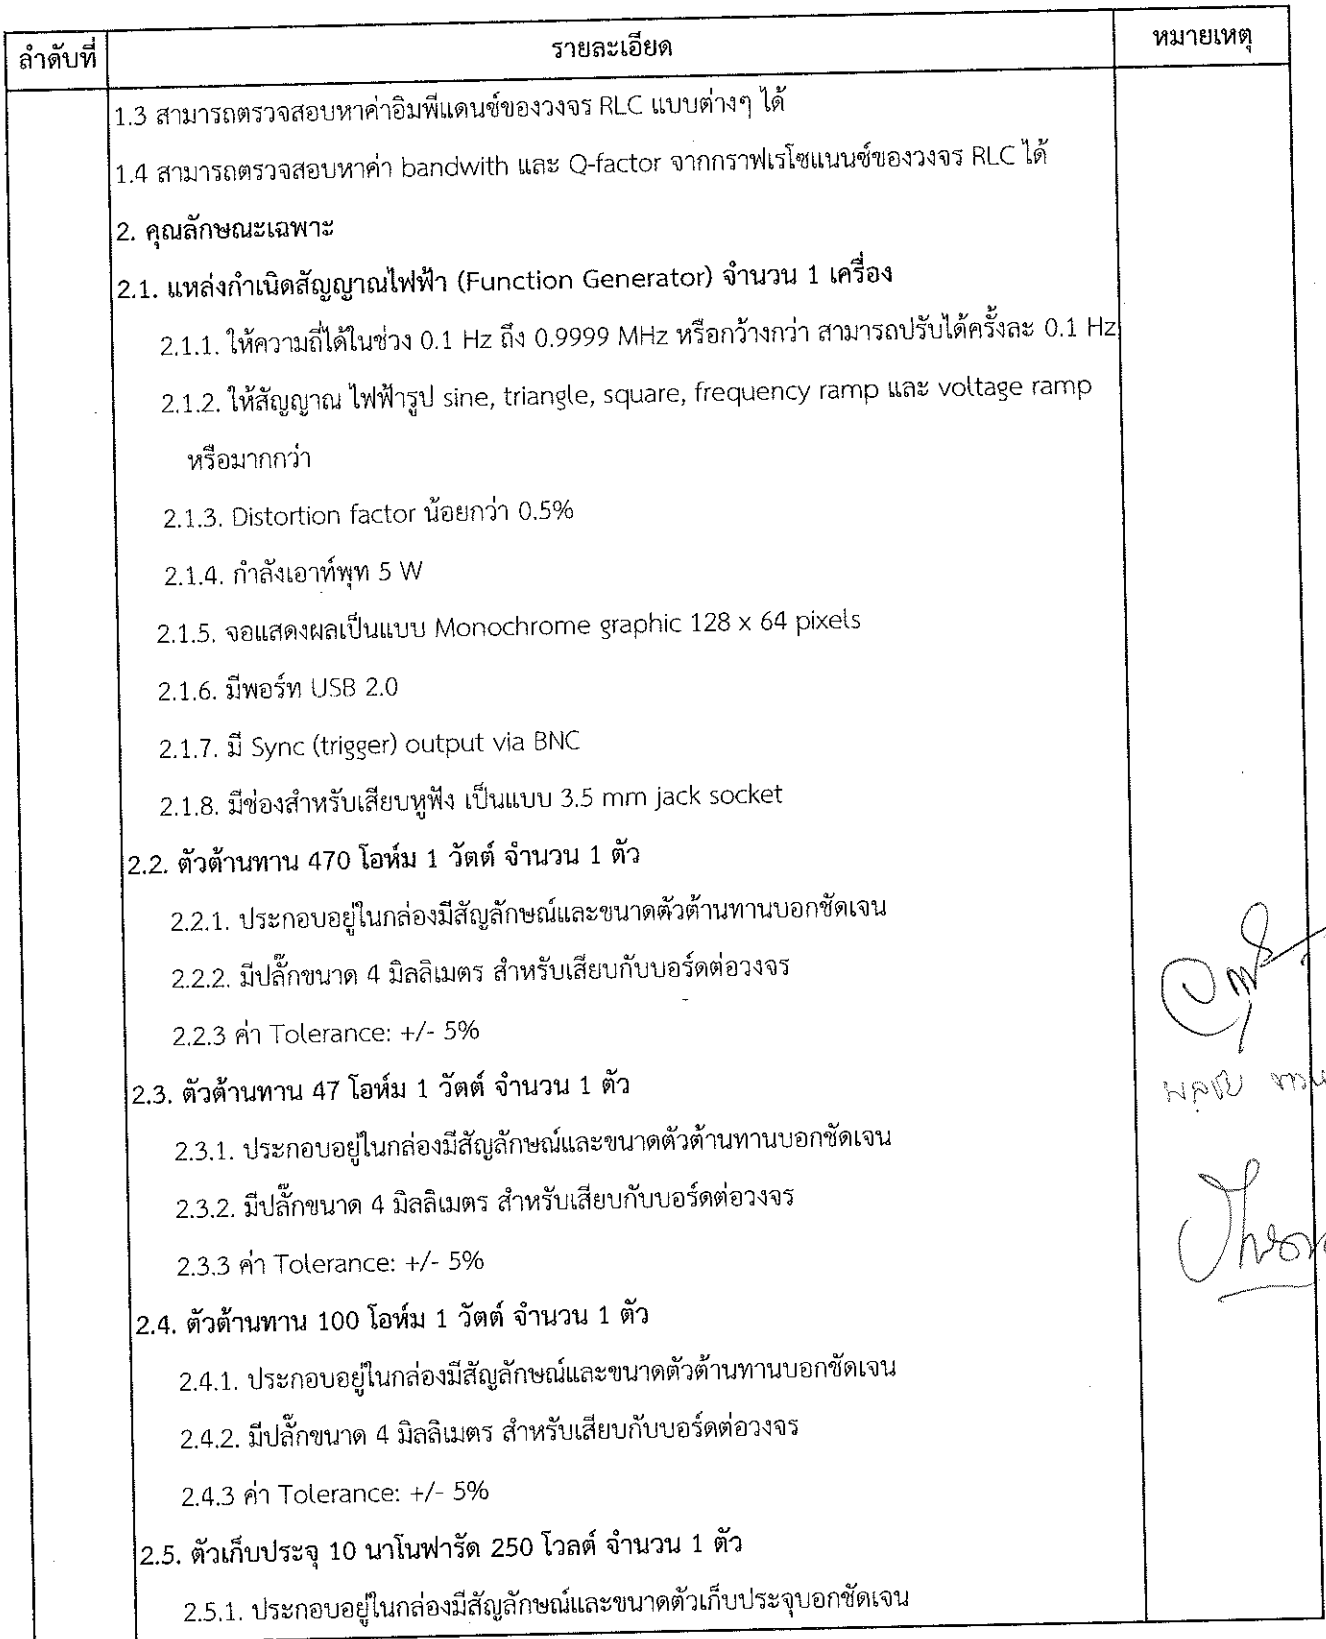 ลำดับที่ รายละเอียด หมายเหตุ
1.3 สามารถตรวจสอบหาค่าอิมพีแดนซ์ของวงจร RLC แบบต่างๆ ได้
1.4 สามารถตรวจสอบหาค่า bandwith และ Q-factor จากกราฟเรโซแนนซ์ของวงจร RLC ได้
2. คุณลักษณะเฉพาะ
2.1. แหล่งกำเนิดสัญญาณไฟฟ้า (Function Generator) จำนวน 1 เครื่อง
2.1.1. ให้ความถี่ได้ในช่วง 0.1 Hz ถึง 0.9999 MHz หรือกว้างกว่า สามารถปรับได้ครั้งละ 0.1 Hz
2.1.2. ให้สัญญาณ ไฟฟ้ารูป sine, triangle, square, frequency ramp และ voltage ramp
หรือมากกว่า
2.1.3. Distortion factor น้อยกว่า 0.5%
2.1.4. กำลังเอาท์พุท 5 W
2.1.5. จอแสดงผลเป็นแบบ Monochrome graphic 128 x 64 pixels
2.1.6. มีพอร์ท USB 2.0
2.1.7. มี Sync (trigger) output via BNC
2.1.8. มีช่องสำหรับเสียบหูฟัง เป็นแบบ 3.5 mm jack socket
2.2. ตัวต้านทาน 470 โอห์ม 1 วัตต์ จำนวน 1 ตัว
2.2.1. ประกอบอยู่ในกล่องมีสัญลักษณ์และขนาดตัวต้านทานบอกชัดเจน
2.2.2. มีปลั๊กขนาด 4 มิลลิเมตร สำหรับเสียบกับบอร์ดต่อวงจร
2.2.3 ค่า Tolerance: +/- 5%
2.3. ตัวต้านทาน 47 โอห์ม 1 วัตต์ จำนวน 1 ตัว
2.3.1. ประกอบอยู่ในกล่องมีสัญลักษณ์และขนาดตัวต้านทานบอกชัดเจน
2.3.2. มีปลั๊กขนาด 4 มิลลิเมตร สำหรับเสียบกับบอร์ดต่อวงจร
2.3.3 ค่า Tolerance: +/- 5%
2.4. ตัวต้านทาน 100 โอห์ม 1 วัตต์ จำนวน 1 ตัว
2.4.1. ประกอบอยู่ในกล่องมีสัญลักษณ์และขนาดตัวต้านทานบอกชัดเจน
2.4.2. มีปลั๊กขนาด 4 มิลลิเมตร สำหรับเสียบกับบอร์ดต่อวงจร
2.4.3 ค่า Tolerance: +/- 5%
2.5. ตัวเก็บประจุ 10 นาโนฟารัด 250 โวลต์ จำนวน 1 ตัว
2.5.1. ประกอบอยู่ในกล่องมีสัญลักษณ์และขนาดตัวเก็บประจุบอกชัดเจน